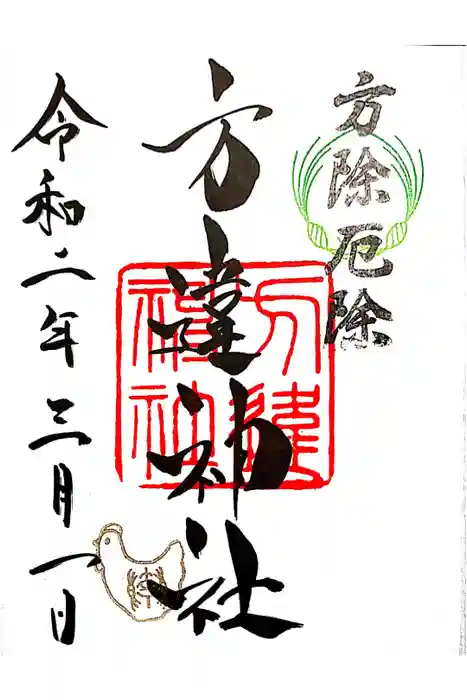 方除厄除
方違神社
方違神社
令和二年三月一日